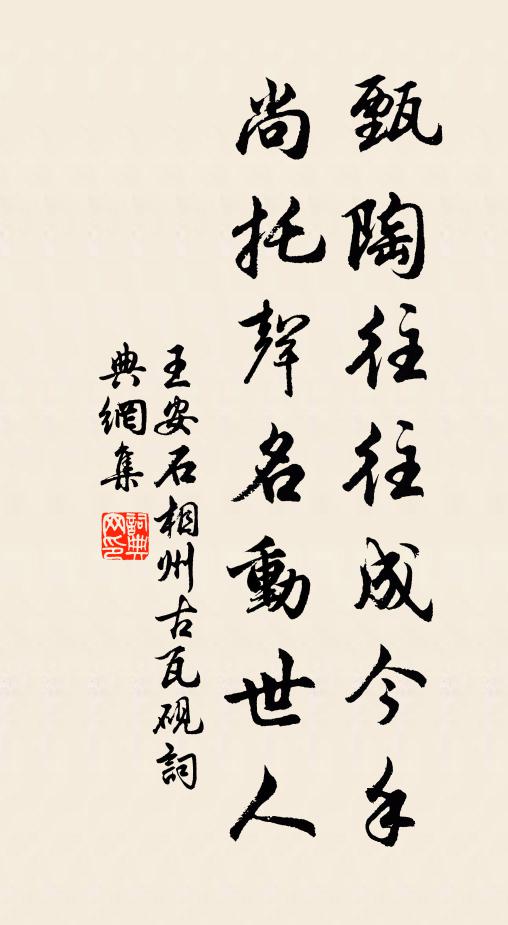 甄陶往往成今手
尚托聲名動世人
王安石相州古瓦硯詞
典網集
詞典
网印